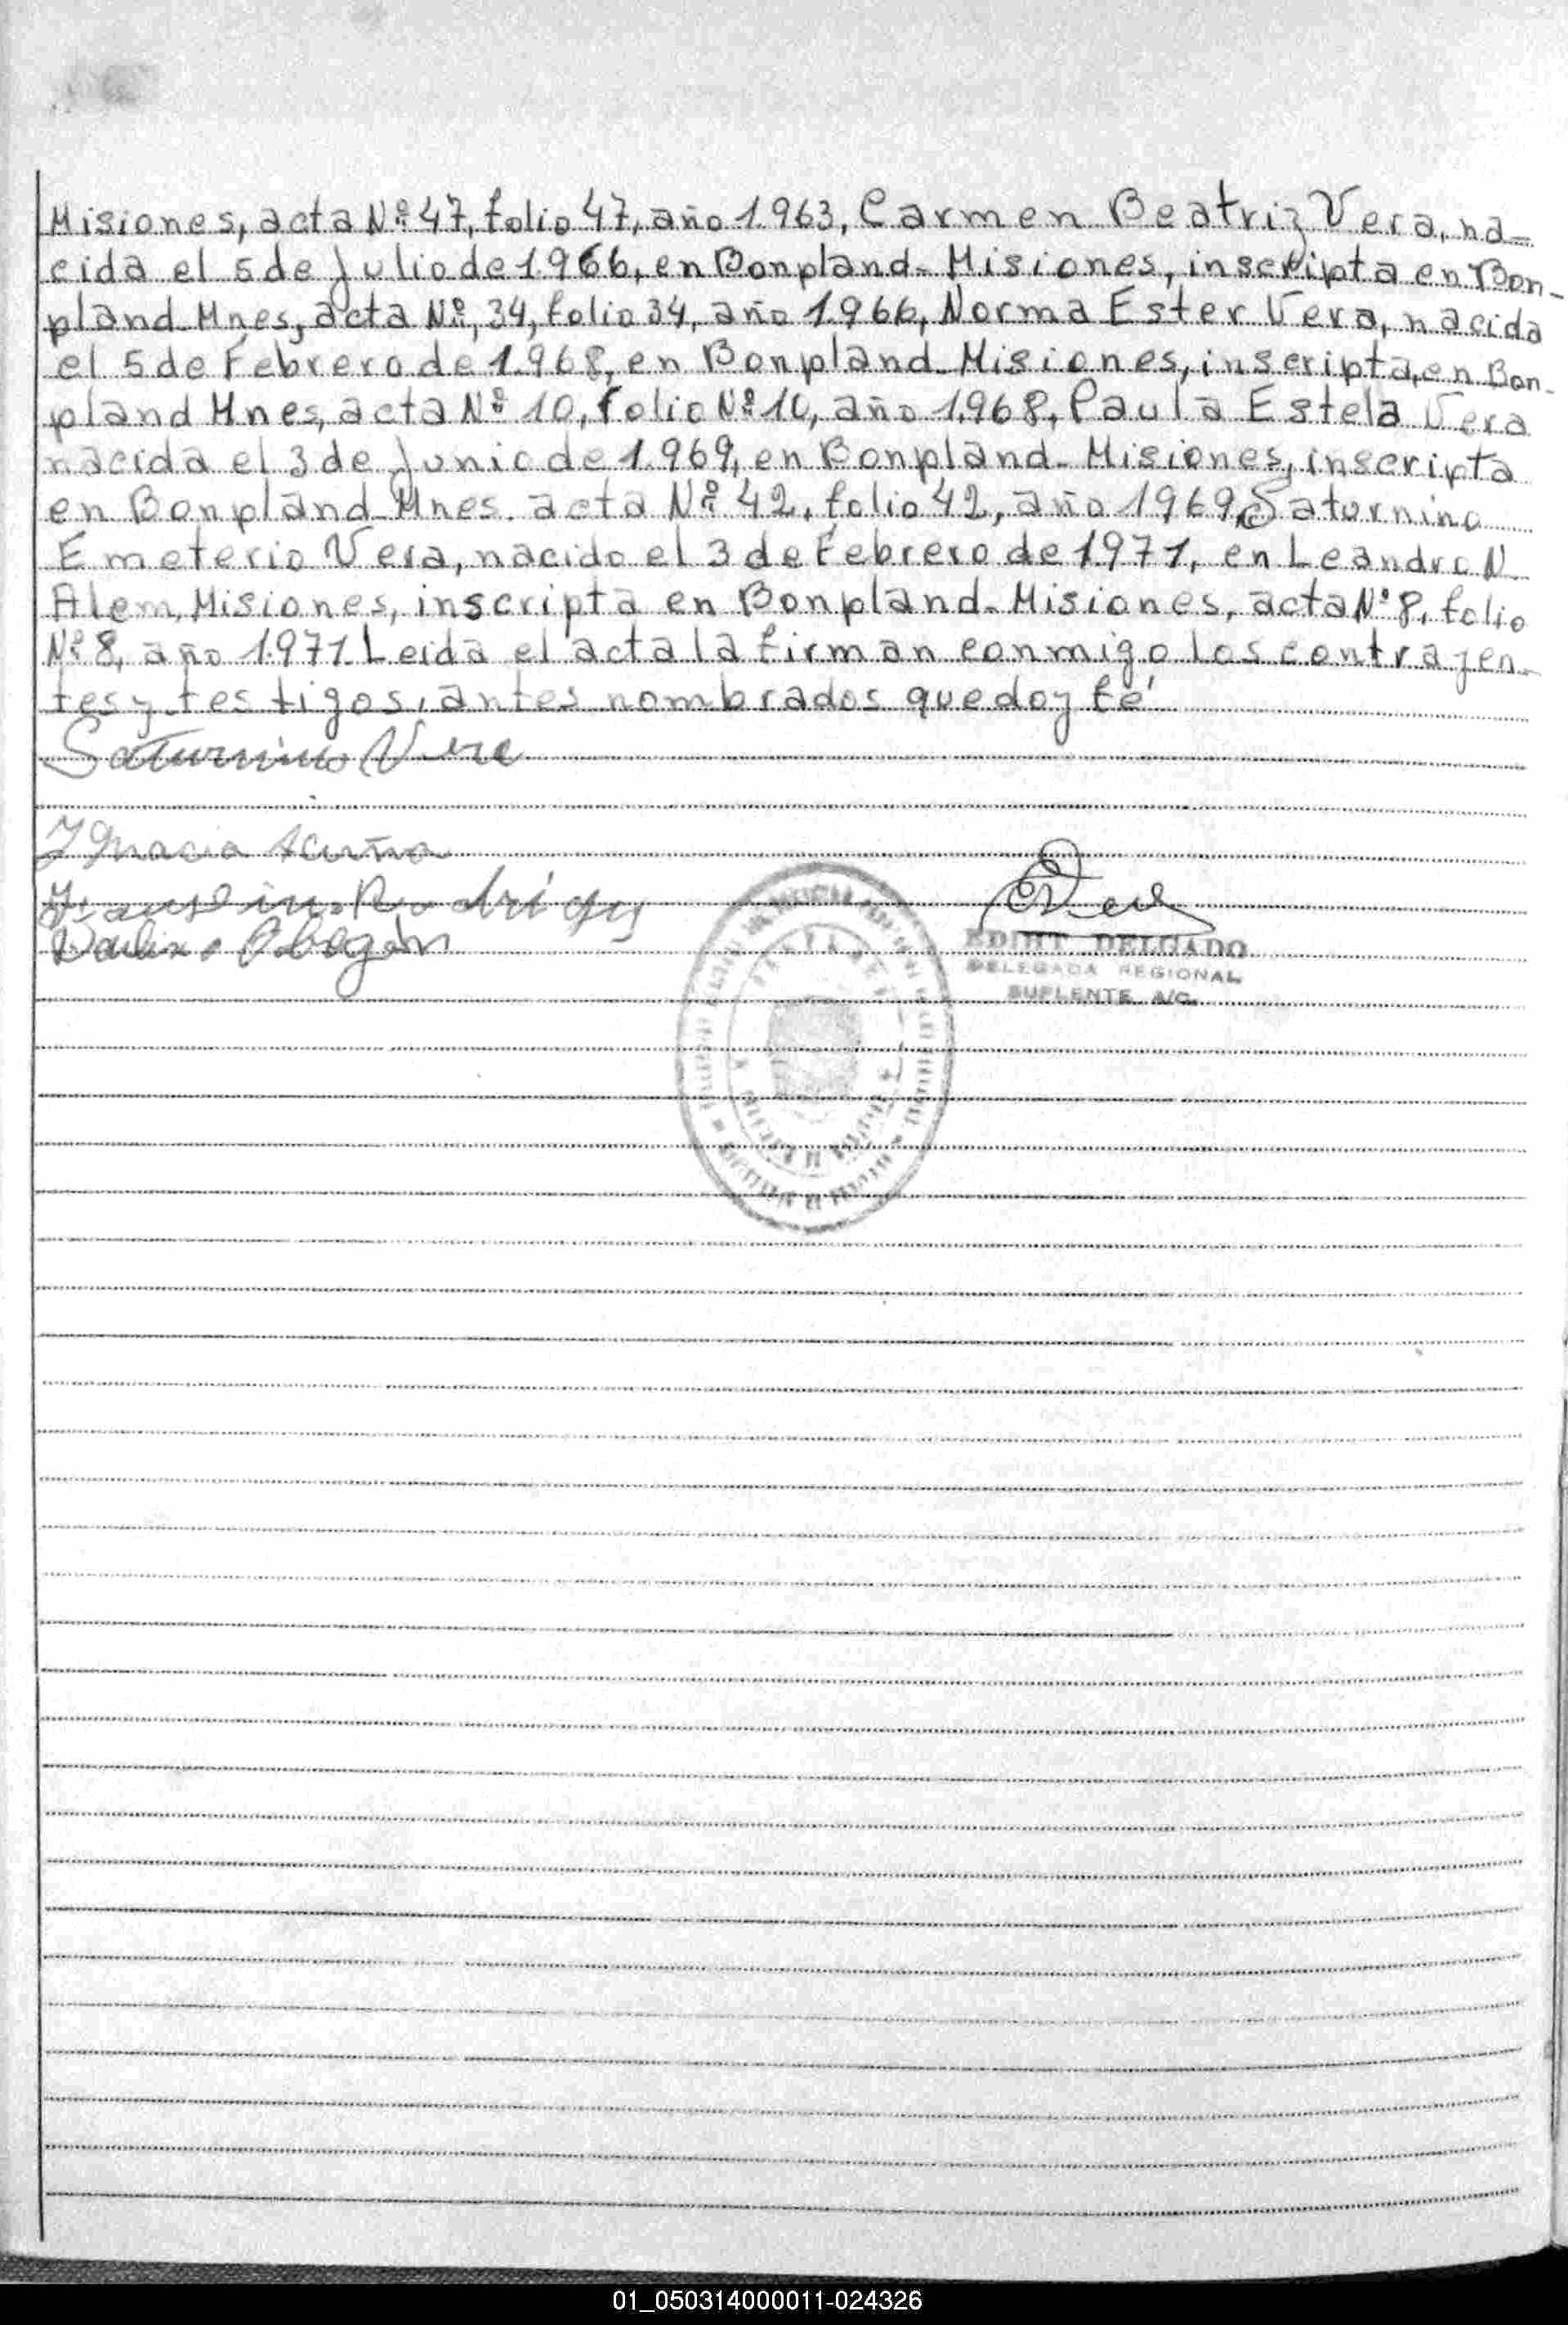 Misiones, acta Nº 47, folio 47, año 1.963, Carmen Beatriz Vera, na-
cida el 5 de Julio de 1.966, en Bonpland - Misiones, inscripta en Bon-
pland Mnes, acta Nº, 34, folio 34, año 1.966, Norma Ester Vera, nacida
el 5 de Febrero de 1.968, en Bonpland - Misiones, inscripta, en Bon-
pland Mnes, acta Nº 10, folio Nº 10, año 1.968, Paula Estela Vera
nacida el 3 de Junio de 1.969, en Bonpland - Misiones, inscripta
en Bonpland Mnes. acta Nº 42, folio 42, año 1969, Saturnino
Emeterio Vera, nacido el 3 de Febrero de 1.971, en Leandro N.
Alem, Misiones, inscripta en Bonpland - Misiones, acta Nº 8, folio
Nº 8, año 1.971. Leida el acta la firman conmigo los contrayen-
tes y testigos, antes nombrados que doy fé
Saturnino Vera
Ignacia Acuña
Rodriguez
Obregón
EDIHT DELGADO
DELEGADA REGIONAL
SUPLENTE A/C.
01_050314000011-024326